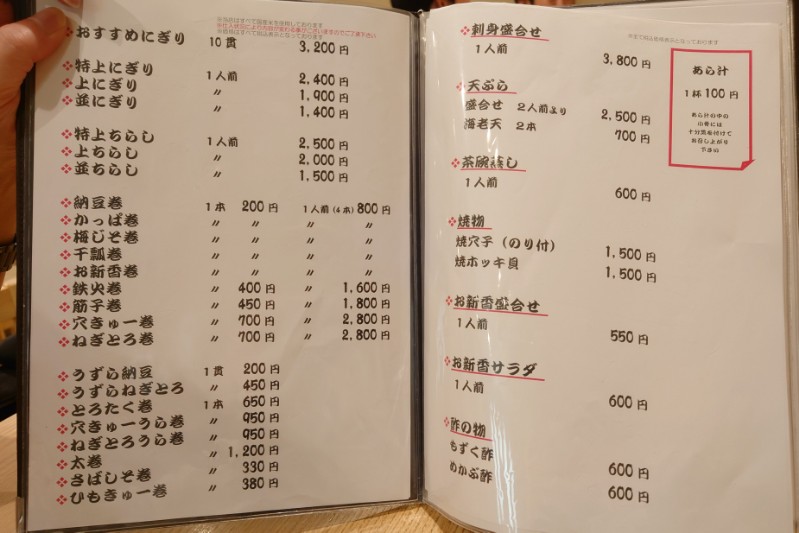 ※当店はすべて国産米を使用しております
※仕入状況により内容が変わる事がございますのでご了承下さい
※価格はすべて税込表示となっております
おすすめにぎり 10貫 3,200円
特上にぎり 1人前 2,400円
上にぎり 〃 1,900円
並にぎり 〃 1,400円
特上ちらし 1人前 2,500円
上ちらし 〃 2,000円
並ちらし 〃 1,500円
納豆巻 1本 200円 1人前(4本) 800円
かっぱ巻 〃 〃 〃 〃
梅じそ巻 〃 〃 〃 〃
干瓢巻 〃 〃 〃 〃
お新香巻 〃 〃 〃 〃
鉄火巻 〃 400円 〃 1,600円
筋子巻 〃 450円 〃 1,800円
穴きゅー巻 〃 700円 〃 2,800円
ねぎとろ巻 〃 700円 〃 2,800円
うずら納豆 1貫 200円
うずらねぎとろ 〃 450円
とろたく巻 1本 650円
穴きゅーうら巻 〃 950円
ねぎとろうら巻 〃 950円
太巻 〃 1,200円
さばしそ巻 〃 330円
ひもきゅー巻 〃 380円
刺身盛合せ
1人前 3,800円
天ぷら
盛合せ 2人前より 2,500円
海老天 2本 700円
茶碗蒸し
1人前 600円
焼物
焼穴子(のり付) 1,500円
焼ホッキ貝 1,500円
お新香盛合せ
1人前 550円
お新香サラダ
1人前 600円
酢の物
もずく酢 600円
めかぶ酢 600円
あら汁
1杯100円
あら汁の中の
小骨には
十分気を付けて
お召し上がり
下さい